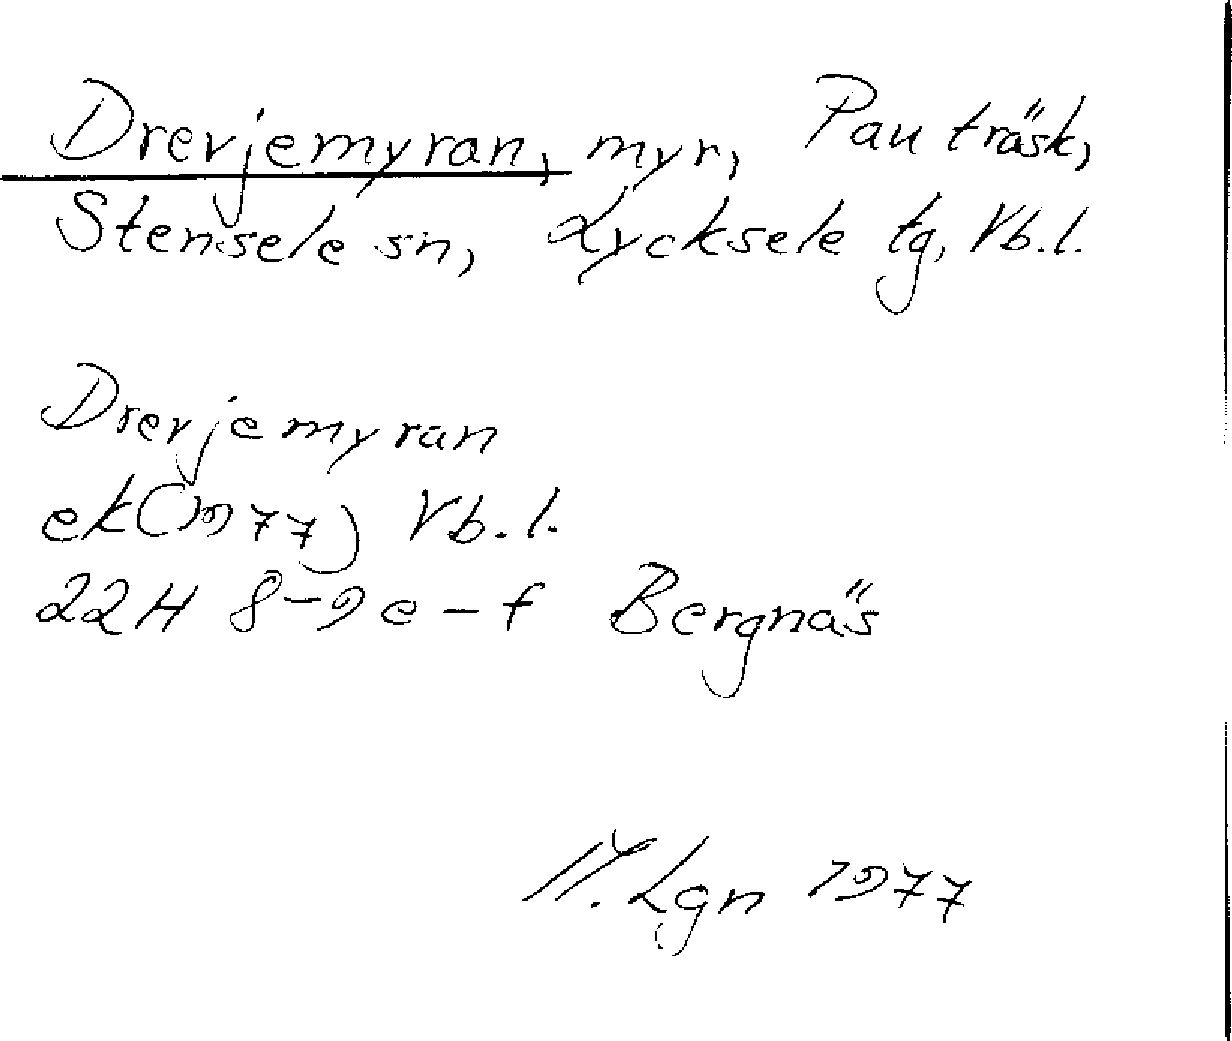 Drevjemyran, myr, Pauträsk,
Stensele sn, Lycksele tg, Vb.l.
Drevjemyran
ek(1977) Vb.l.
22H 8-9e-f Bergnäs
Lgn 1977